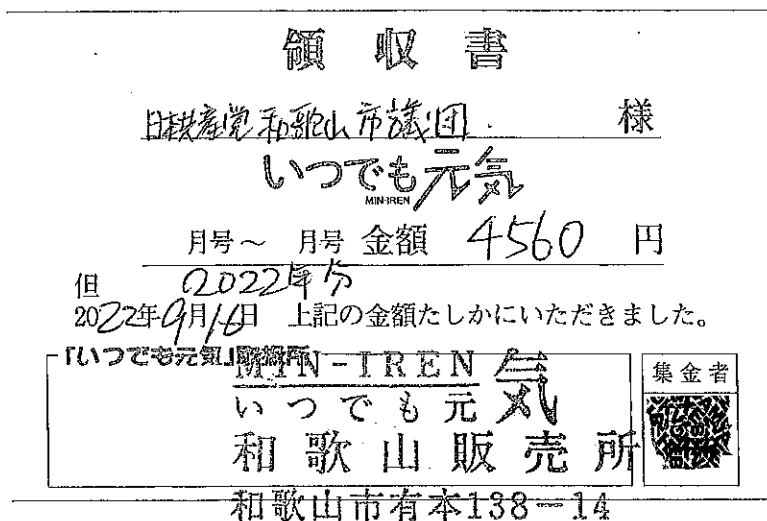 領収書
日本共産党和歌山市議団 様
いつでも元気
MIN-IREN
月号～ 月号 金額 4560 円
但 2022年分
2022年9月16日 上記の金額たしかにいただきました。
「いつでも元気」
MIN-IREN
いつでも元気
和歌山販売所
和歌山市有本138-14
集金者